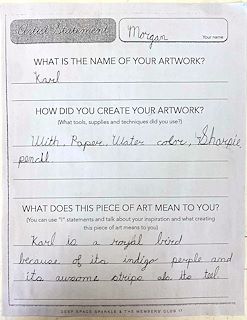 Artist Statement
Morgan
Your name
WHAT IS THE NAME OF YOUR ARTWORK?
Karl
HOW DID YOU CREATE YOUR ARTWORK?
(What tools, supplies and techniques did you use?)
With, Paper, Water color, Sharpie
pencil
WHAT DOES THIS PIECE OF ART MEAN TO YOU?
(You can use "I" statements and talk about your inspiration and what creating
this piece of art means to you)
Karl is a royal bird
because of its indigo perple and
its awsome strips als its teel
DEEP SPACE SPARKLE & THE MEMBERS CLUB